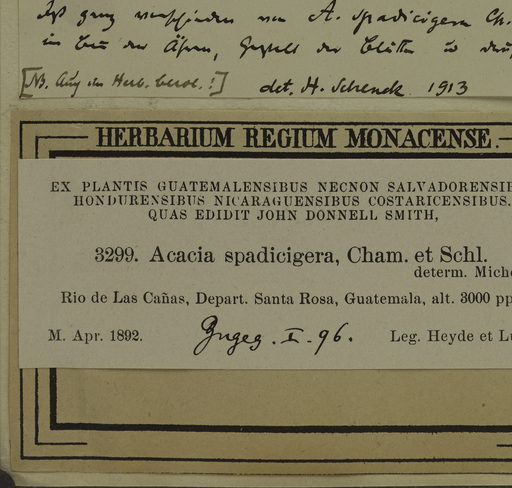 Ist ganz verschieden von A. spadicigera Ch.
in der Ähren, der Blätter
[NB. Aug in Herb. berol.!] det. H. Schenck 1913
HERBARIUM REGIUM MONACENSE.
EX PLANTIS GUATEMALENSIBUS NECNON SALVADORENSIB
HONDURENSIBUS NICARAGUENSIBUS COSTARICENSIBUS.
QUAS EDIDIT JOHN DONNELL SMITH,
3299. Acacia spadicigera, Cham. et Schl.
determ. Miche
Rio de Las Cañas, Depart. Santa Rosa, Guatemala, alt. 3000 pp
M. Apr. 1892. Leg. Heyde et Lu
Gngeg. I. 96.